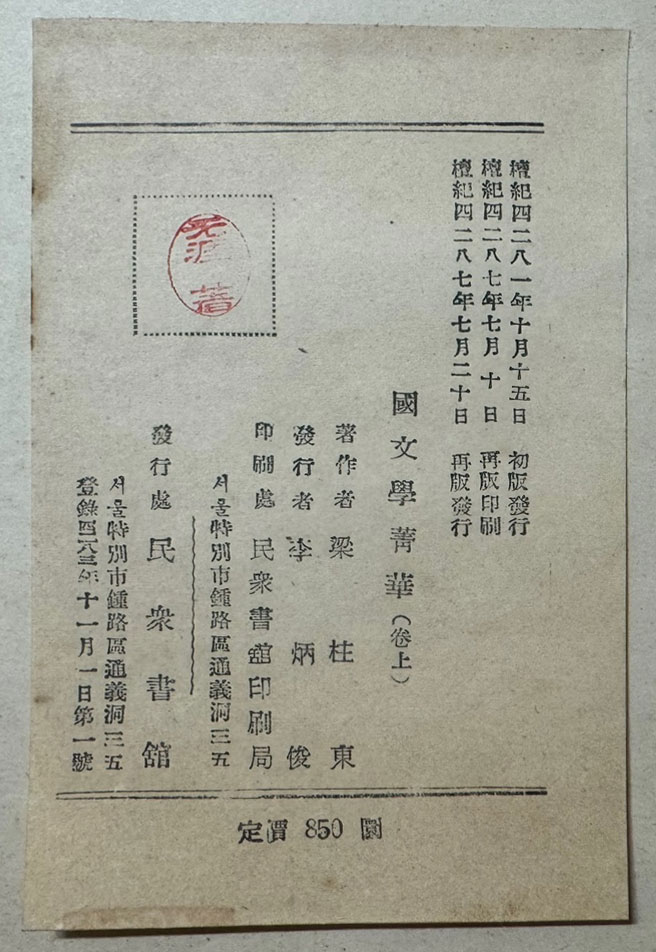 檀紀四二八一年十月十五日 初版發行
檀紀四二八七年七月十日 再版印刷
檀紀四二八七年七月二十日 再版發行
國文學菁華(卷上)
著作者 梁柱東
發行者 李炳俊
印刷處 民衆書舘印刷局
서울特別市鍾路區通義洞三五
發行處 民衆書舘
서울特別市鍾路區通義洞三五
登錄四二八三年十一月一日第一號
无涯著
定價 850 圜